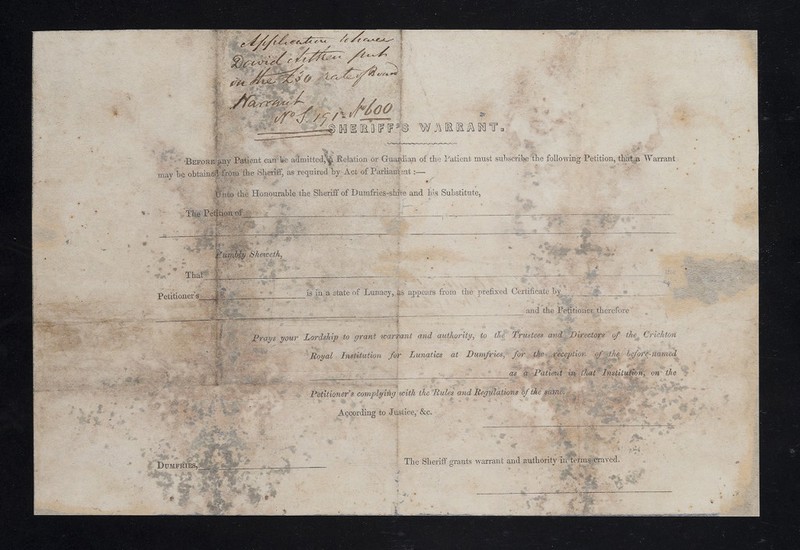 Application
David Aitken put
on the £50 rate of Board
No 600
SHERIFF'S WARRANT.
BEFORE any Patient can be admitted, A Relation or Guardian of the Patient must subscribe the following Petition, that a Warrant
may be obtained from the Sheriff, as required by Act of Parliament :—
Unto the Honourable the Sheriff of Dumfries-shire and his Substitute,
The Petition of
Humbly Sheweth,
That
Petitioner's is in a state of Lunacy, as appears from the prefixed Certificate by
and the Petitioner therefore
Prays your Lordship to grant warrant and authority, to the Trustees and Directors of the Crichton
Royal Institution for Lunatics at Dumfries, for the reception of the before-named
as a Patient in that Institution, on the
Petitioner's complying with the Rules and Regulations of the same.
According to Justice, &c.
DUMFRIES, The Sheriff grants warrant and authority in terms craved.